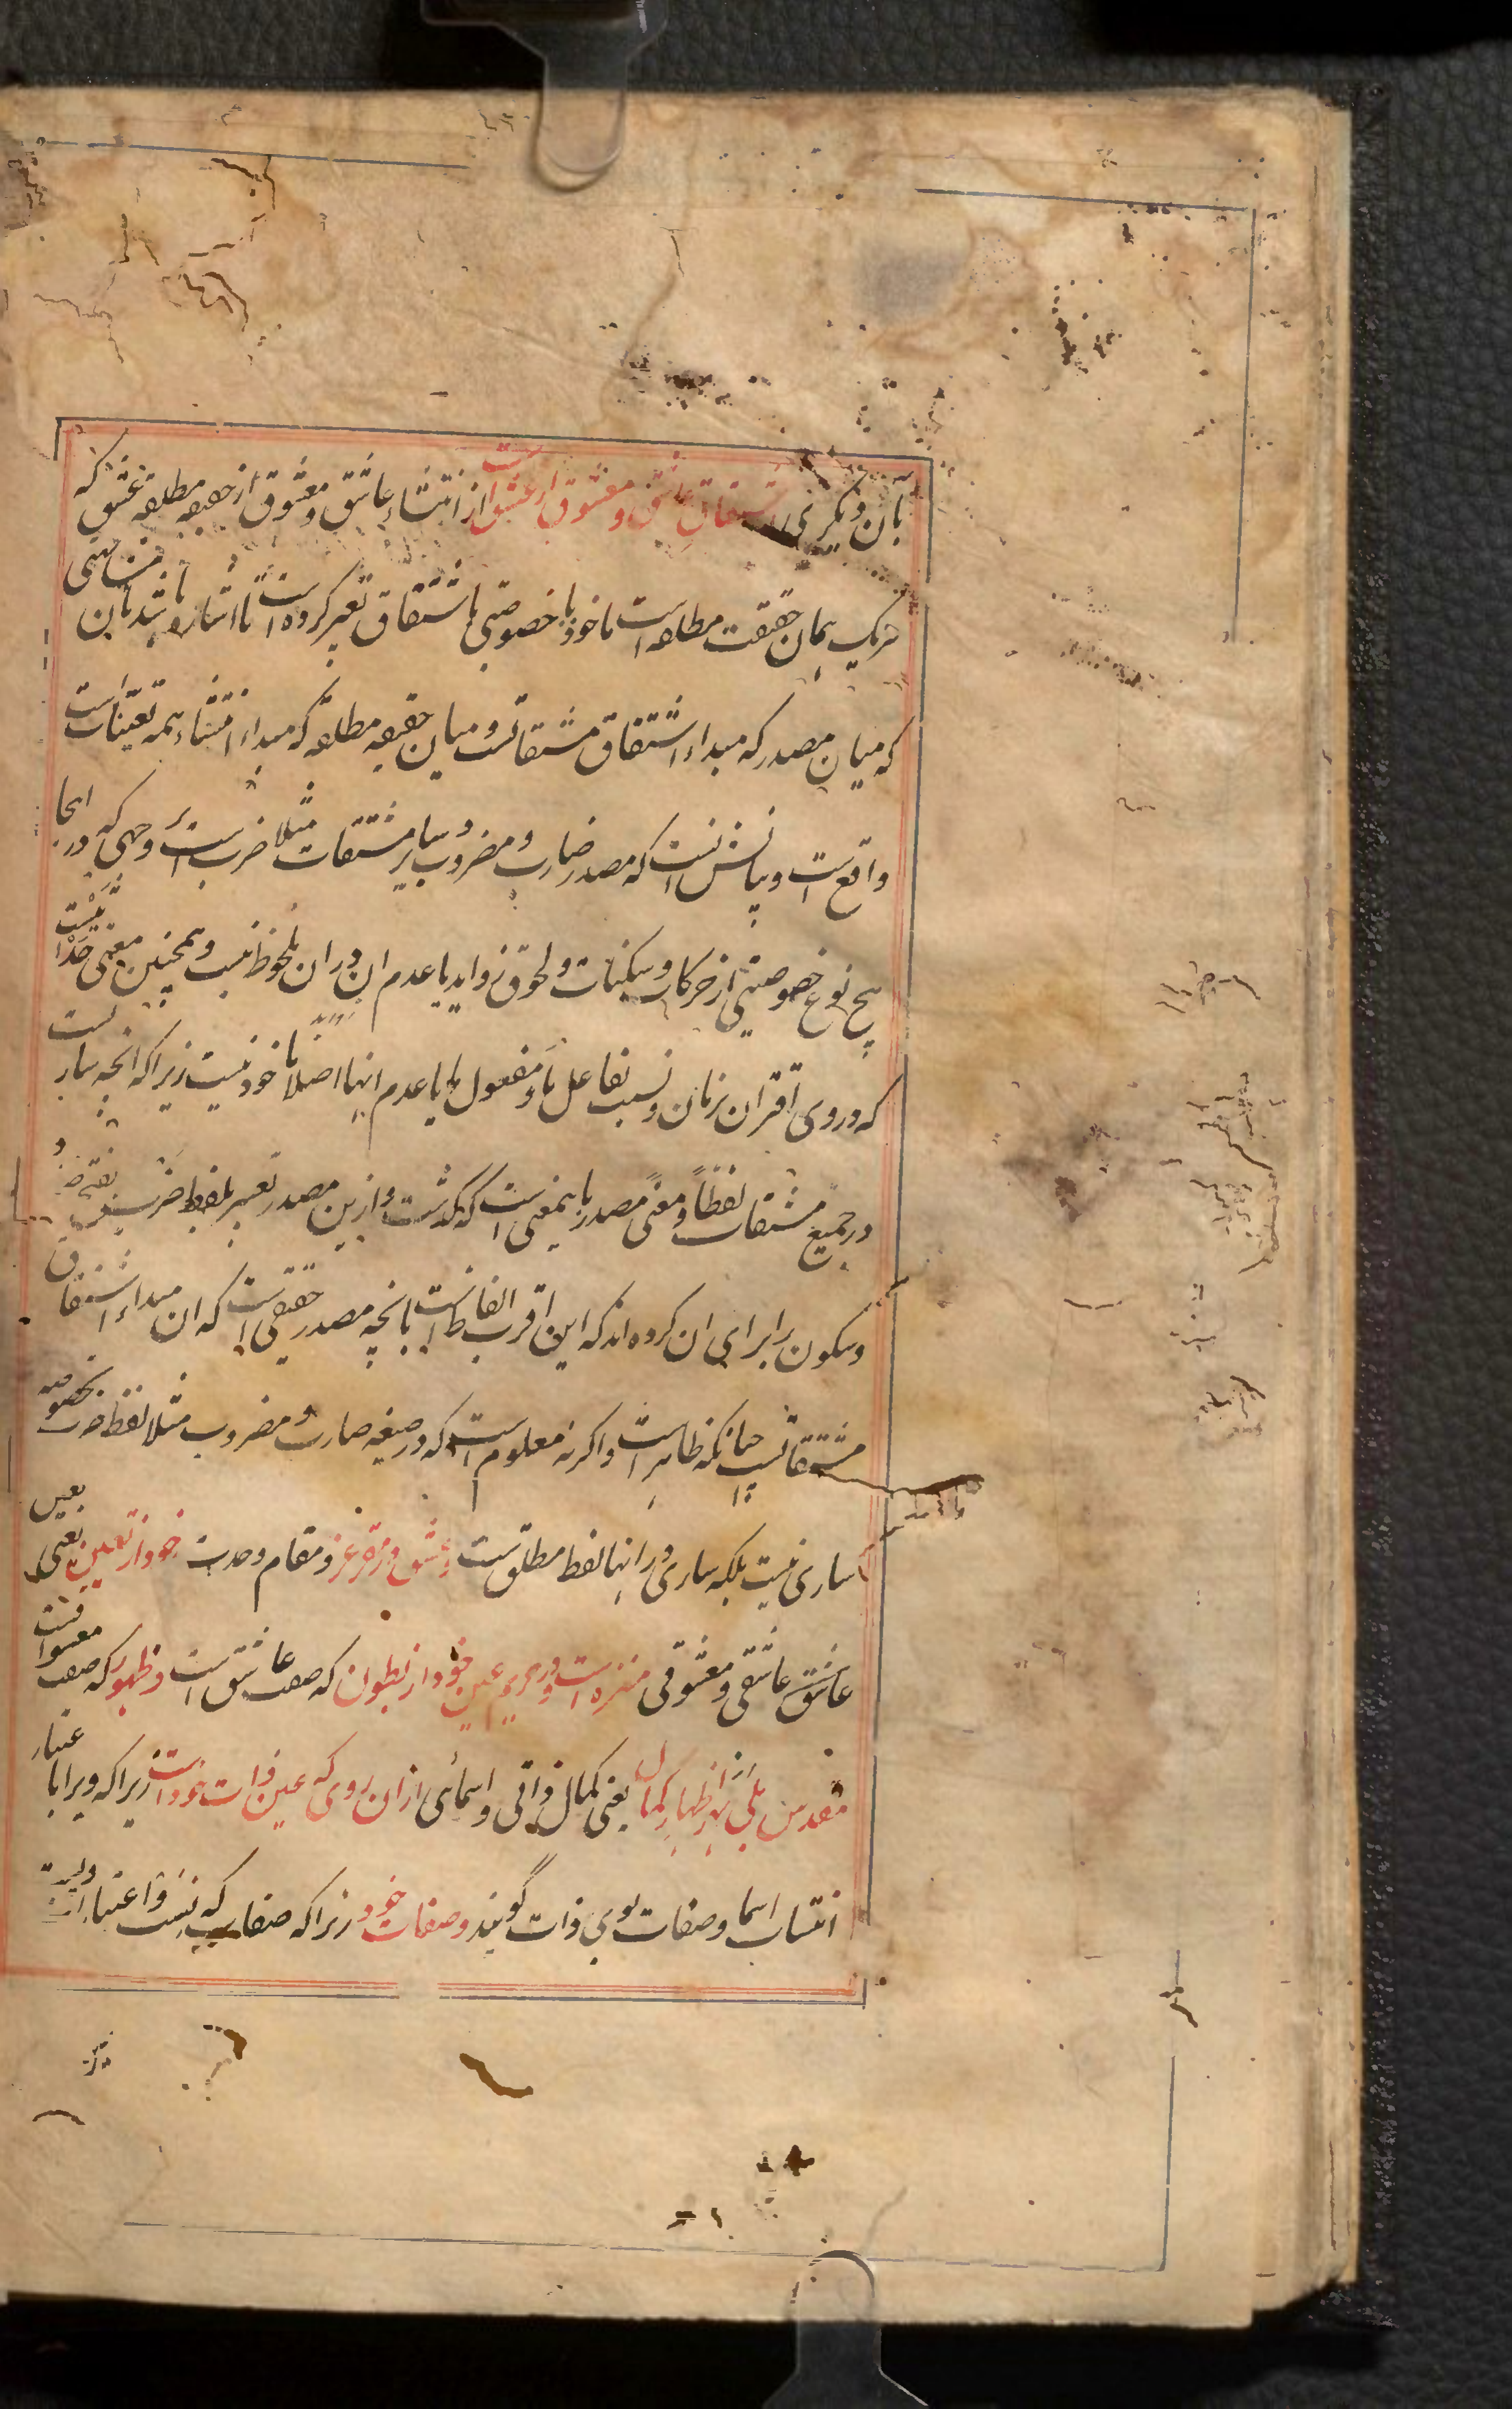 بان دیکری اشتقاق عاشق و معشوق از عشق است از انتشاء عاشق و معشوق از حقیقه مطلقه عشق که
هریک همان حقیقت مطلقه است ماخوذ با خصوصیتی باشتقاق تعبیر کرده است تا اشارو باشد بان مناسبتی
که میان مصدر که مبداء اشتقاق مشتقاتست و میان حقیقه مطلقه که مبداء انتشاء همه تعینات است
واقع است و بیانش انست که مصدر ضارب و مضروب و سایر مشتقات مثلا ضرب است وجهی که در انجا
هیچ نوع خصوصیتی از حرکات و سکنات و لحوق زواید یا عدم ان در ان ملحوظ نیست و همچنین معنی حدثیست
که در وی اقتران بزمان و نسبت بفاعل ما و مفعول ما یا عدم اینها اصلا ماخوذ نیست زیرا که انچه ساریست
در جمیع مشتقات لفظاً و معنیً مصدر باینمعنی است که گذشت و ازین مصدر تعبیر بلفظ ضرب بفتح ض و
و سکون را برای ان کرده اند که این اقرب الفاظ است بانچه مصدر حقیقی است که ان مبداء اشتقاق
مشتقاتست چنانکه ظاهر است و اکرنه معلوم است که در صیغه ضارب و مضروب مثلا لفظ ضرب بخصوصه
ساری نیست بلکه ساری در اینها لفظ مطلق است و عشق در مقر عز و مقام وحدت خود از تعین یعنی بتعین
عاشق عاشقی و معشوقی منزه است و در حریم عین خود از بطون که صفت عاشق است و ظهور که صفت معشوقست
مقدس بلی بهر اظهار کمال یعنی کمال ذاتی و اسمائی ازان روی که عین ذات خود است زیرا که ویرا باعتبار
انتساب اسما و صفات بوی ذات گویند و صفات خود زیرا که صفات که نسب و اعتبارات